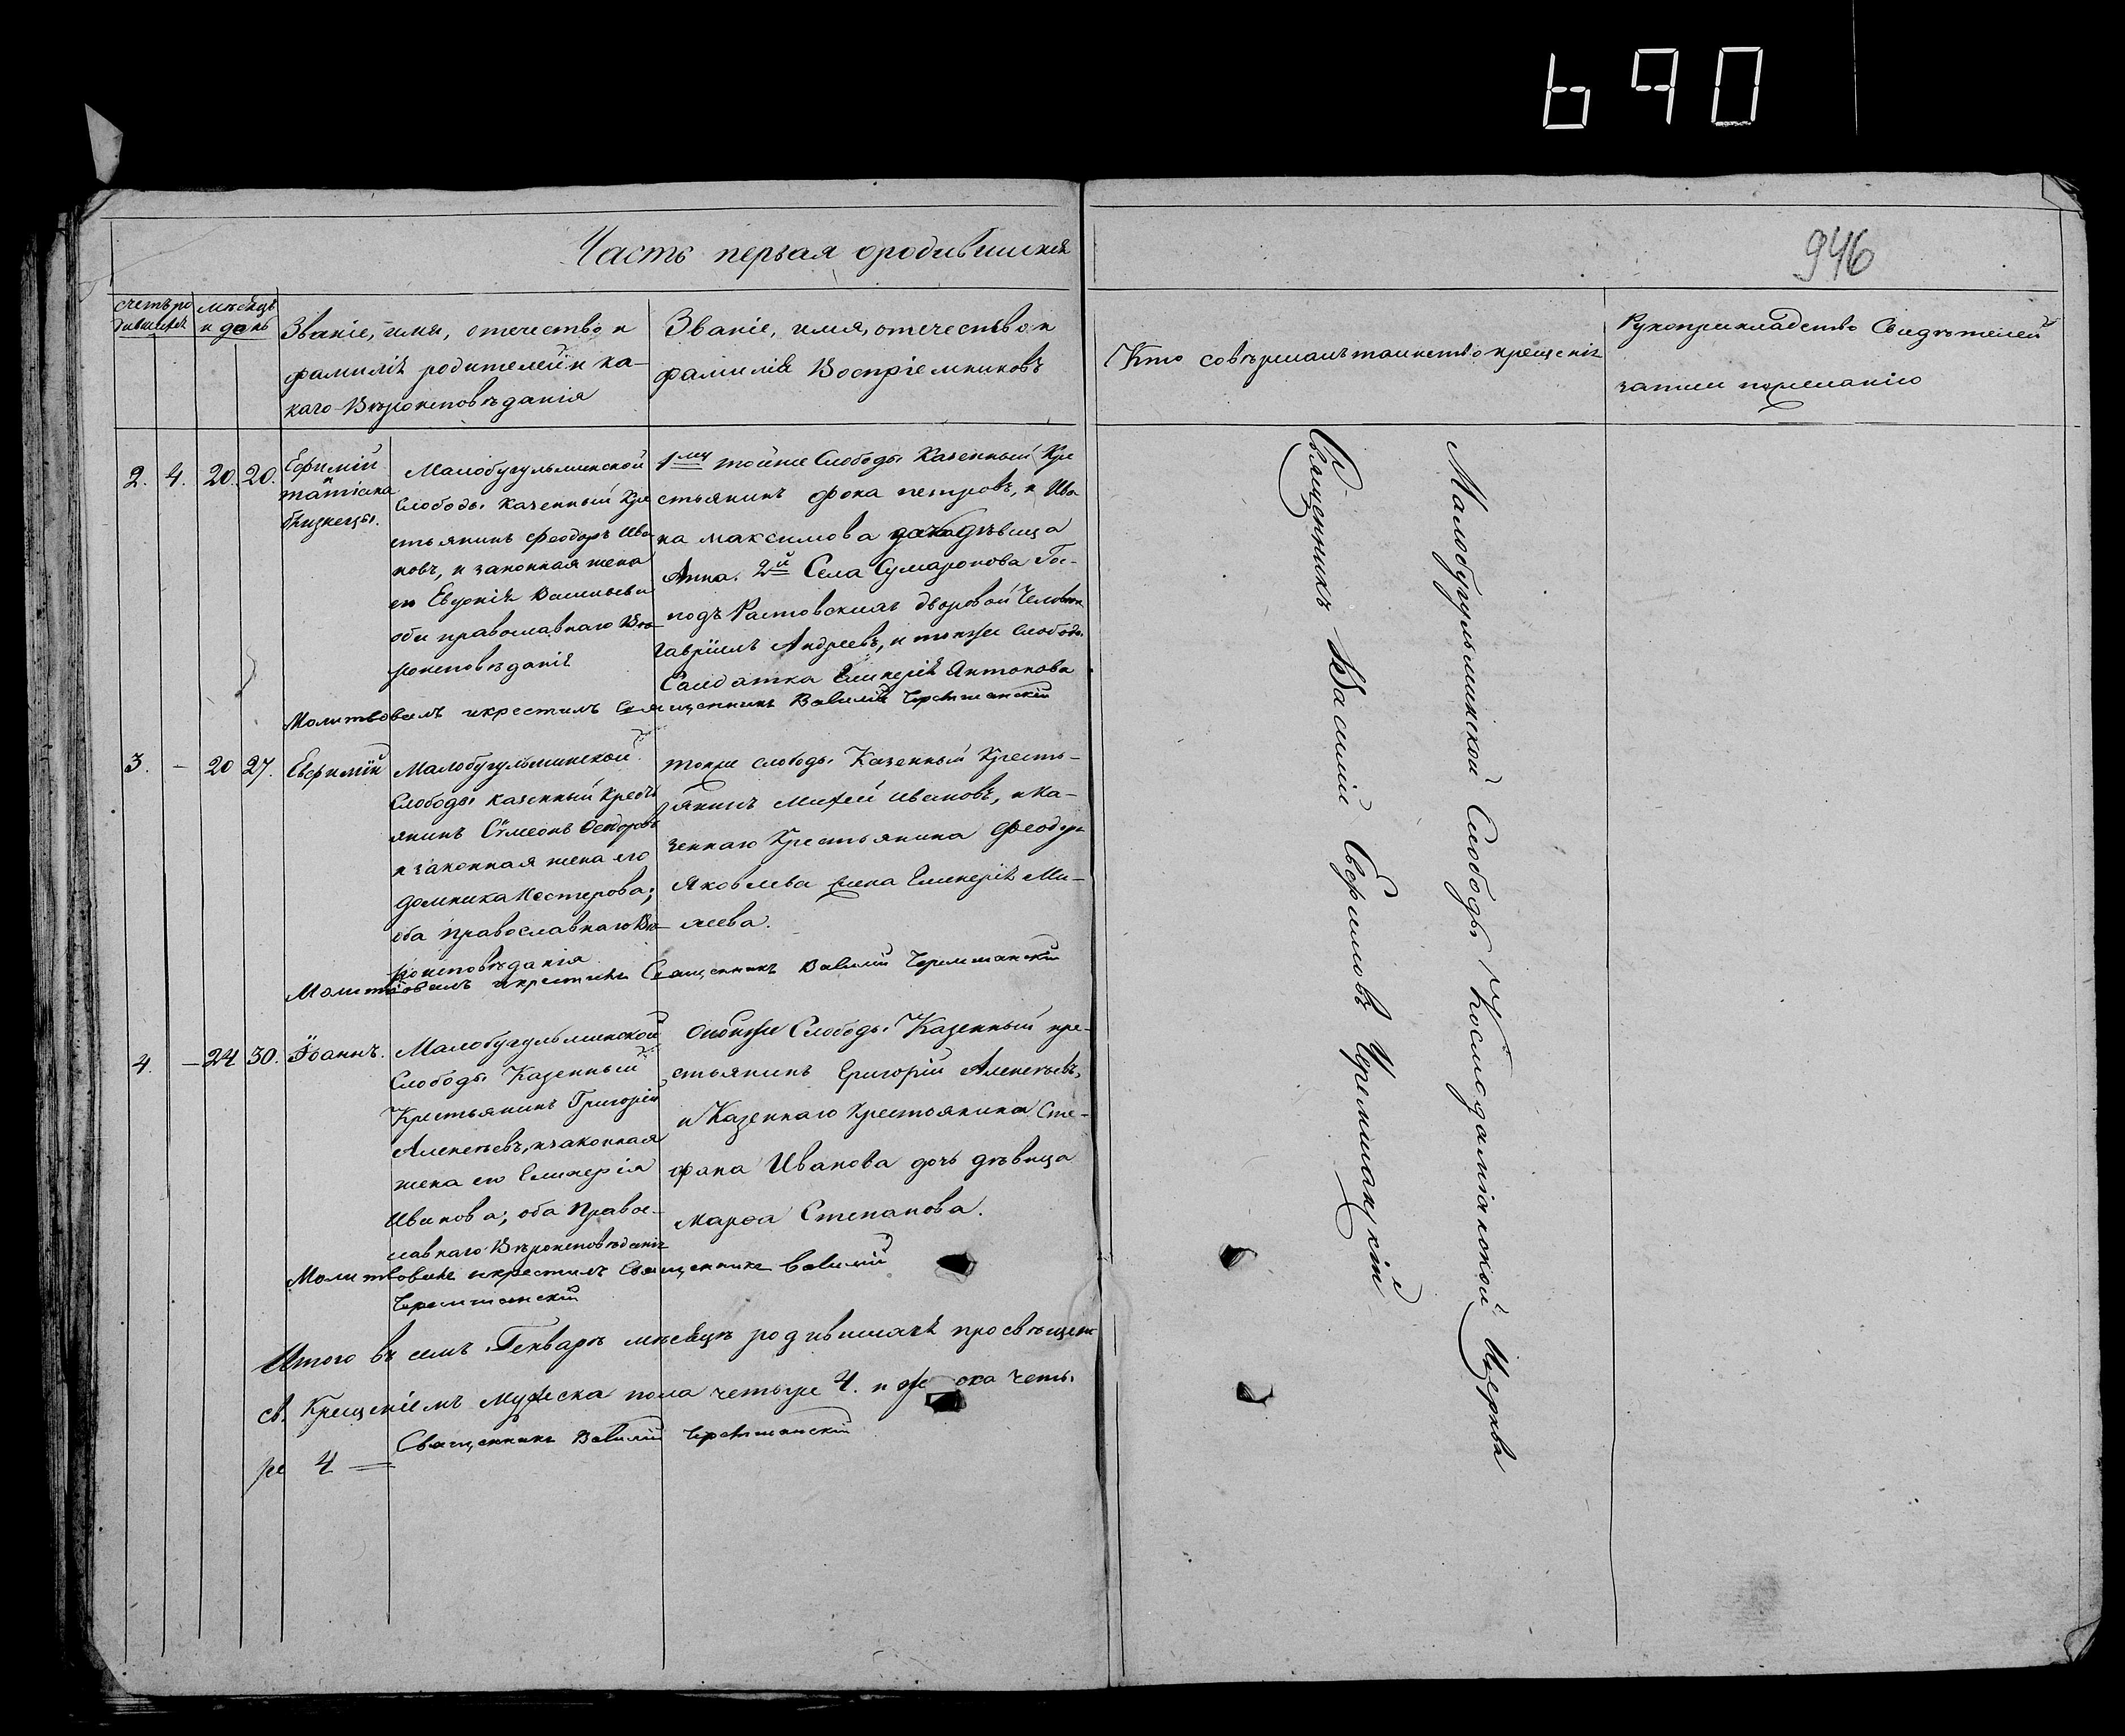 690
946
Часть первая ородившихся
счетъ ро
дившихся
мѣсяцъ
и день
Званіе, имя, отечество и
фамилія родителей и ка-
каго Вѣроисповѣданія
Званіе, имя, отечество и
фамилія Воспріемниковъ
Кто совершалъ таинство крещенія
Рукоприкладство Свидѣтелей
записи по желанію
2. 4. 20. 20.
Ефимій
татіана
близнецы.
Малобугульминской
Слободы казенный Кре
стьянинъ Феодоръ Ива
новъ, и законная жена
его Евдокія Васильева
оба православнаго Вѣ-
роисповѣданія
тойже Слободы Казенный Кре
стьянинъ Фока петровъ, и Ива
на максимова дѣвица
Анна. 2й Села Сумарокова Гос-
подъ дворовой Человѣкъ
Гавріилъ Андреевъ, и тойже слободы
Салдатка Гликерія Антонова
Молитвовалъ икрестилъ Священникъ Василій Черемшанскій
3. - 20 27.
Евфимій
Малобугульминской
Слободы казенный крестъ
янинъ Сѵмеонъ Феодоровъ
и законная жена его
домника Нестерова;
оба православнаго Вѣ-
роисповѣданія
тойже слободы Казенный Кресть-
янинъ Михей Ивановъ, и Ка-
зеннаго Крестьянина Феодора
Яковлева жена Гликерія Ми-
хеева.
Молитвовалъ икрестилъ Священникъ Василій Черемшанскій
4. - 24 30.
Іоаннъ.
Малобугульминской
Слободы Казенный
Крестьянинъ Григорій
Алексѣевъ, изаконная
жена его Гликерія
Иванова; оба Правос-
лавнаго Вѣроисповѣданія
Слободы Казенный кре-
стьянинъ Григорій Алексѣевъ,
и Казеннаго Крестьянина Сте-
фана Иванова дочь дѣвица
Марѳа Степанова.
Молитвовалъ икрестилъ Священникъ Василій
Черемшанскій
Итого въ семъ Генварѣ мѣсяцѣ родившихся просвѣщено
св. Крещеніемъ мужеска пола четыре 4. и же ска четы
ре 4
Священникъ Василій Черемшанскій
Малобугульминской Слободы Космодаміановской Церкви
Священникъ Василій Ефремовъ Черемшанскій